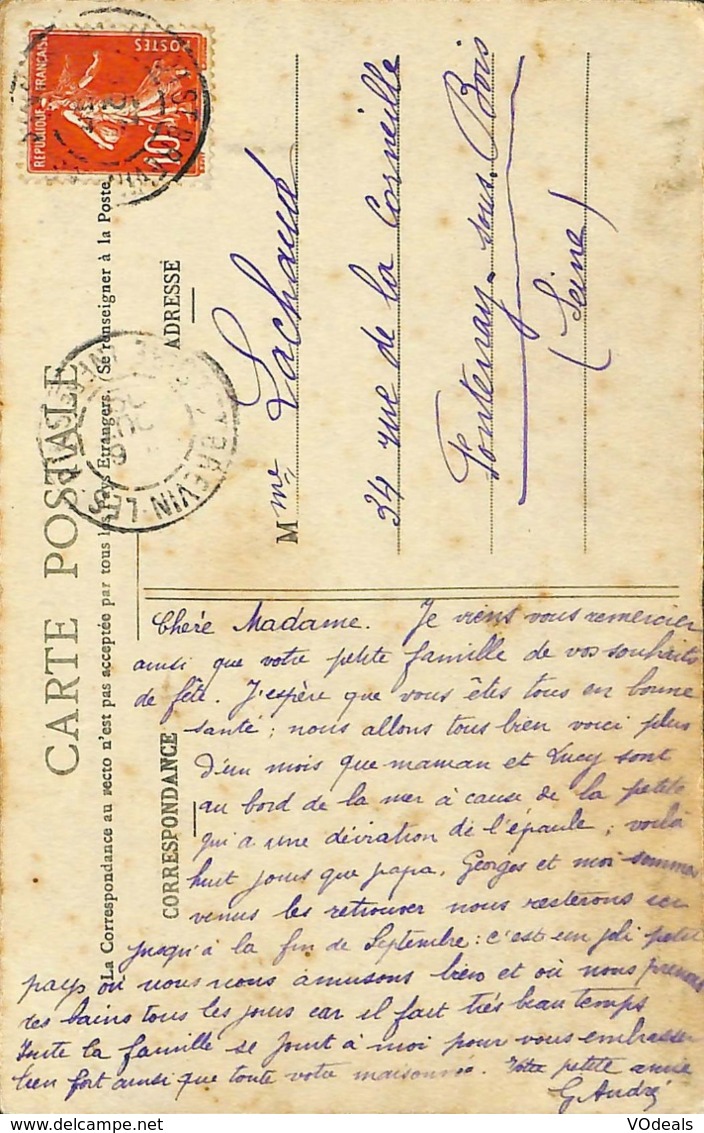 CARTE POSTALE
La Correspondance au recto n'est pas acceptée par tous les pays Etrangers. (Se renseigner à la Poste)
REPUBLIQUE FRANÇAISE
POSTES
10
BREVIN-LES
CORRESPONDANCE
ADRESSE
Mme Lachaud
34 rue de la Corneille
Fontenay-sous-Bois
(Seine)
Chère Madame. Je viens vous remercier
ainsi que votre petite famille de vos souhaits
de fête. J'espère que vous êtes tous en bonne
santé; nous allons tous bien voici plus
d'un mois que maman et Lucy sont
au bord de la mer à cause de la petite
qui a une déviation de l'épaule; voilà
huit jours que papa, Georges et moi sommes
venus les retrouver nous resterons ici
jusqu'à la fin de Septembre: c'est un joli petit
pays où nous nous amusons bien et où nous prenons
des bains tous les jours car il fait très beau temps
Toute la famille se joint à moi pour vous embrasser
bien fort ainsi que toute votre maisonnée. Votre petite amie
G André
VOdeals